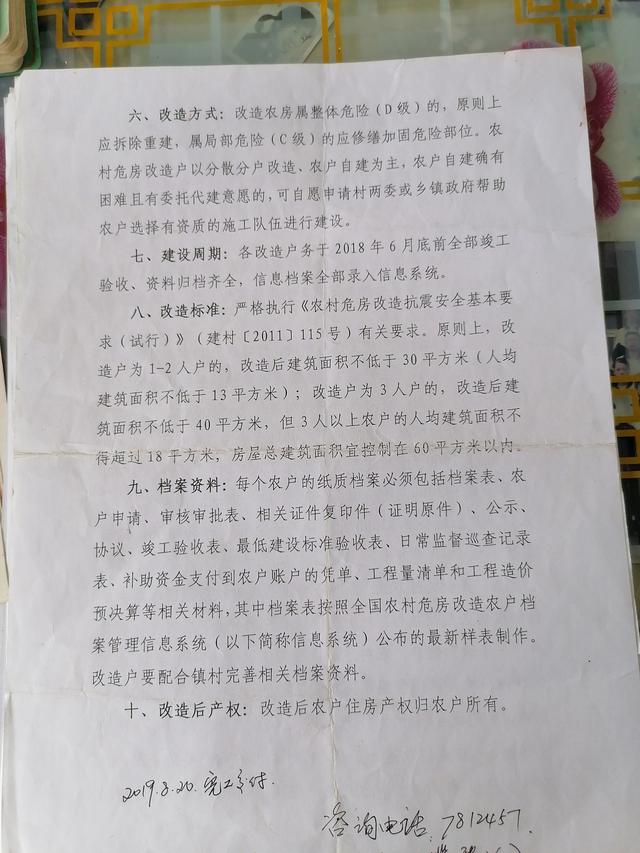 六、改造方式：改造农房属整体危险（D级）的，原则上
应拆除重建，属局部危险（C级）的应修缮加固危险部位。农
村危房改造户以分散分户改造、农户自建为主，农户自建确有
困难且有委托代建意愿的，可自愿申请村两委或乡镇政府帮助
农户选择有资质的施工队伍进行建设。
七、建设周期：各改造户务于2018年6月底前全部竣工
验收、资料归档齐全，信息档案全部录入信息系统。
八、改造标准：严格执行《农村危房改造抗震安全基本要
求（试行）》（建村〔2011〕115号）有关要求。原则上，改
造户为1-2人户的，改造后建筑面积不低于30平方米（人均
建筑面积不低于13平方米）；改造户为3人户的，改造后建
筑面积不低于40平方米，但3人以上农户的人均建筑面积不
得超过18平方米，房屋总建筑面积宜控制在60平方米以内。
九、档案资料：每个农户的纸质档案必须包括档案表、农
户申请、审核审批表、相关证件复印件（证明原件）、公示、
协议、竣工验收表、最低建设标准验收表、日常监督巡查记录
表、补助资金支付到农户账户的凭单、工程量清单和工程造价
预决算等相关材料，其中档案表按照全国农村危房改造农户档
案管理信息系统（以下简称信息系统）公布的最新样表制作。
改造户要配合镇村完善相关档案资料。
十、改造后产权：改造后农户住房产权归农户所有。
2019.8.20.完工交付.
咨询电话：7812457.